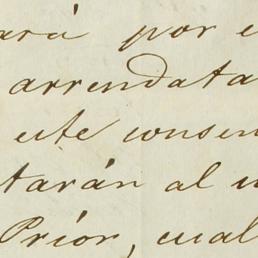 ará por e
arrendata
este consen
tarán al
Prior, cual